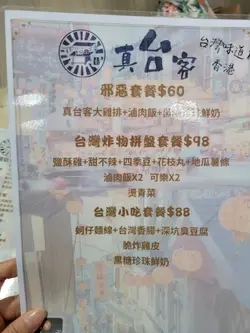 真台客
台灣味道
香港
邪惡套餐$60
真台客大雞排+滷肉飯+黑糖珍珠鮮奶
台灣炸物拼盤套餐$98
鹽酥雞+甜不辣+四季豆+花枝丸+地瓜薯條
滷肉飯X2 可樂X2
燙青菜
台灣小吃套餐$88
蚵仔麵線+台灣香腸+深坑臭豆腐
脆炸雞皮
黑糖珍珠鮮奶